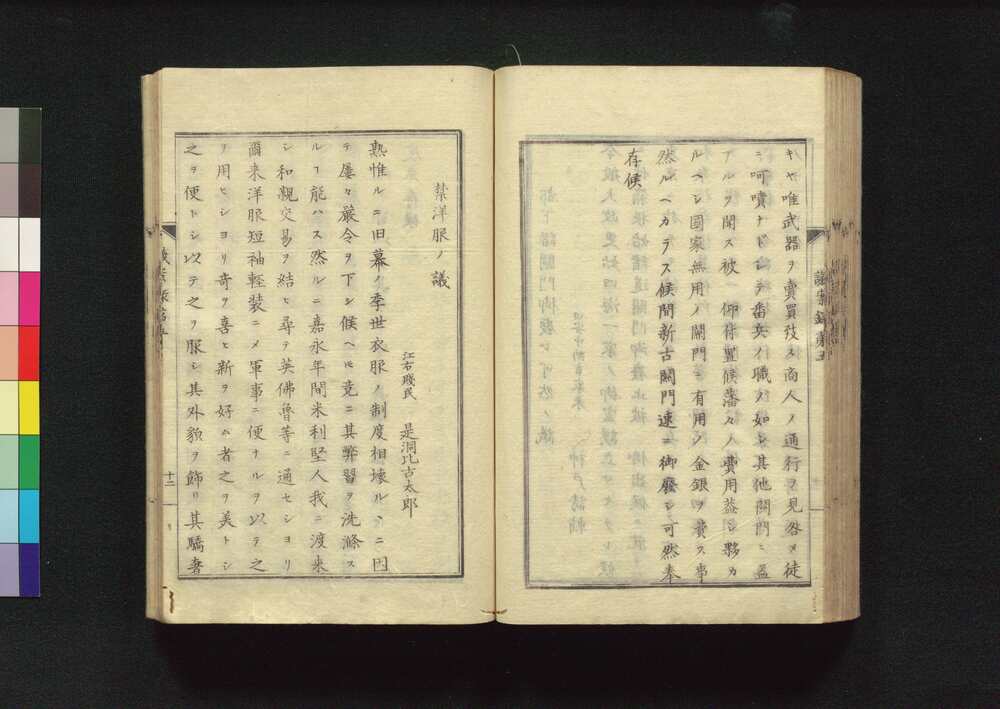 キヤ唯武器ヲ賣買致ス商人ノ通行ヲ見咎メ徒
ニ呵嘖ナドシテ番兵ノ職ノ如シ其他關門ニ益
アルヲ聞ス被仰付置候藩々ノ費用莫シ夥カ
ルヘシ國家無用ノ關門ニ有用ノ金銀ヲ費ス事
然ルヘカラス候間新古關門速ニ御廢シ可然奉
存候
禁洋服ノ議
江右賤民 是洞比古太郎
熟惟ルニ旧幕ノ季世衣服ノ制度相壊ルヽニ因
テ屢々嚴令ヲ下シ候ヘモ竟ニ其弊習ヲ洗滌ス
ルヿ能ハス然ルニ嘉永年間米利堅人我ニ渡来
シ和親交易ヲ結ヒ尋テ英佛魯等ニ通セシヨリ
爾来洋服短袖軽装ニメ軍事ニ便ナルヲ以テ之
ヲ用ヒショリ奇ヲ喜ヒ新ヲ好ム者之ヲ美トシ
之ヲ便トシ以テ之ヲ服シ其外貌ヲ飾リ其驕奢
十二